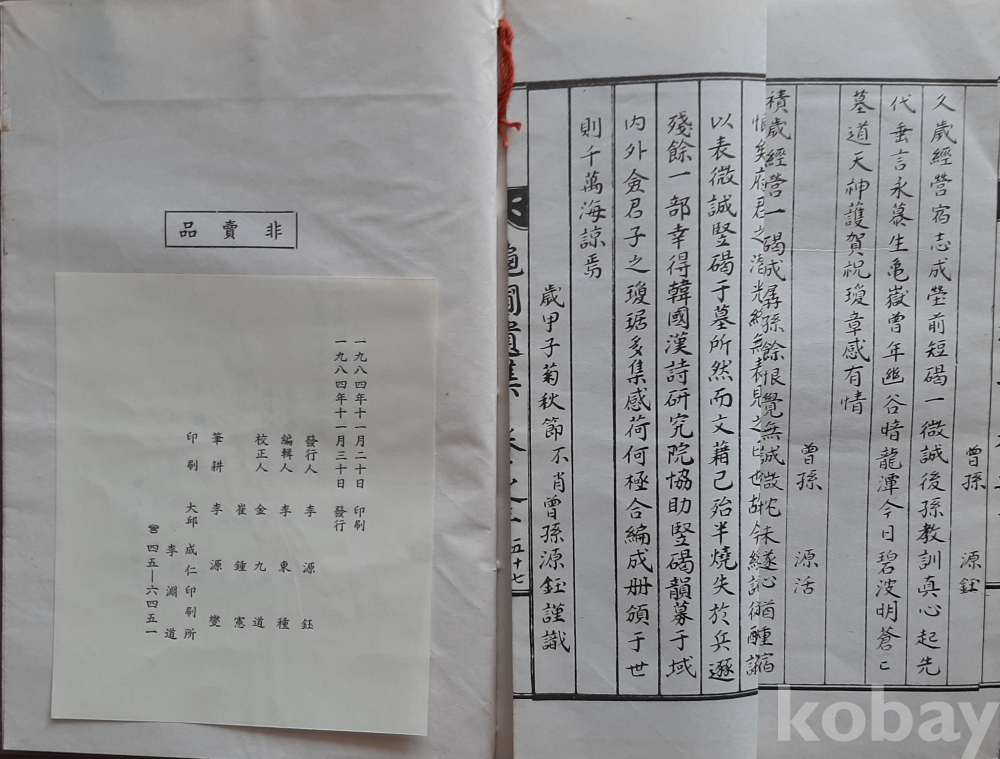 曾孫 源鈺
久歲經營宿志成塋前短碣一微誠後孫教訓真心起先
代垂言永慕生龜嶽曾年幽谷暗龍潭今日碧波明蒼亡
墓道天神護賀祝瓊章感有情
曾孫 源活
積歲經營一碣成孱孫餘恨覺無誠
以表微誠竪碣于墓所然而文藉已殆半燒失於兵遜
殘餘一部幸得韓國漢詩研究院協助竪碣韻募于域
內外僉君子之瓊琚多集感荷何極合編成冊頒于世
則千萬海諒焉
歲甲子菊秋節不肖曾孫源鈺謹識
五十七
非賣品
一九八四年十一月二十日 印刷
一九八四年十一月三十日 發行
發行人 李源鈺
編輯人 李東種
校正人 金九道
崔鍾憲
筆耕 李源燮
印刷 大邱 成仁印刷所
李淵道
☎ 四五―六四五一
kobay